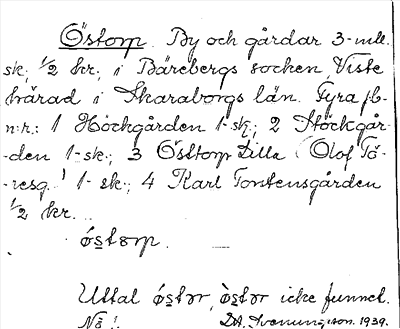 Östorp. By och gårdar 3 mtl.
sk, 1/2 kr., i Bärebergs socken, Viste
härad i Skaraborgs län. Fyra jb-
n:r.: 1 Höckgården 1 sk.; 2 Stöckgår-
den 1 sk.; 3 Östtorp Lilla (Olof
1 sk.; 4 Karl Torstensgården
1/2 kr.
östɔrp.
Uttal östər, östər icke funnet.
Nä! D. A. 1939.